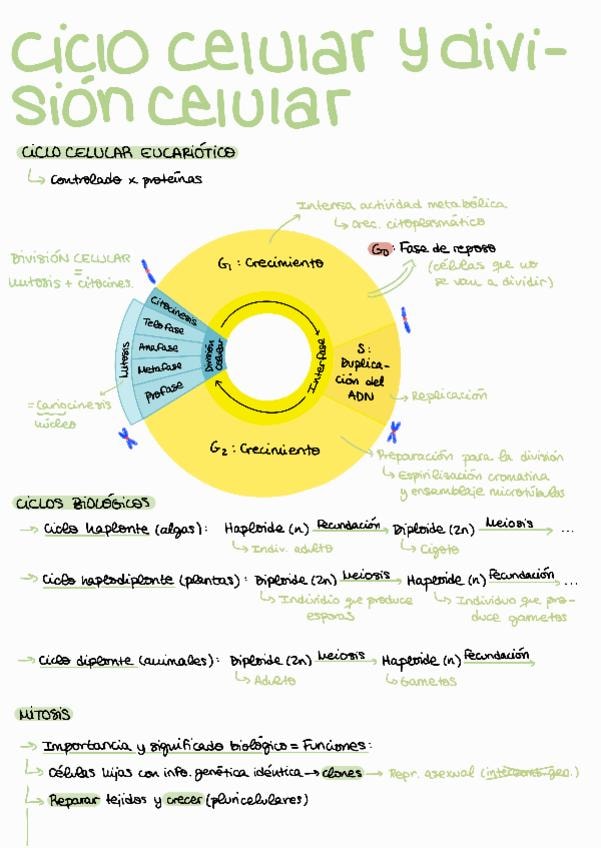 ciclo celular y divi-
sión celular
CICLO CELULAR EUCARIÓTICO
Controlado x proteínas
Intensa actividad metabólica
crec. citoplasmático
G0: Fase de reposo
(células que no
se van a dividir)
DIVISIÓN CELULAR
=
Mitosis + citocines.
G1: Crecimiento
Citocinesis
Telofase
Anafase
Metafase
Profase
Mitosis
División
celular
Interfase
S:
Duplica-
ción del
ADN
Replicación
= Cariocinesis
núcleo
G2: Crecimiento
Preparación para la división
Espirilización cromatina
y ensamblaje microtúbulos
CICLOS BIOLÓGICOS
Ciclo haplonte (algas): Haploide (n) Fecundación Diploide (2n) Meiosis ...
Indiv. adulto Cigoto
Ciclo haplodiplonte (plantas): Diploide (2n) Meiosis Haploide (n) Fecundación ...
Individio que produce Individuo que pro-
esporas duce gametos
Ciclo diplonte (animales): Diploide (2n) Meiosis Haploide (n) Fecundación
Adulto Gametos
MITOSIS
Importancia y significado biológico = Funciones:
Células hijas con info. genética idéntica → clones → Repr. asexual
Reparar tejidos y crecer (pluricelulares)